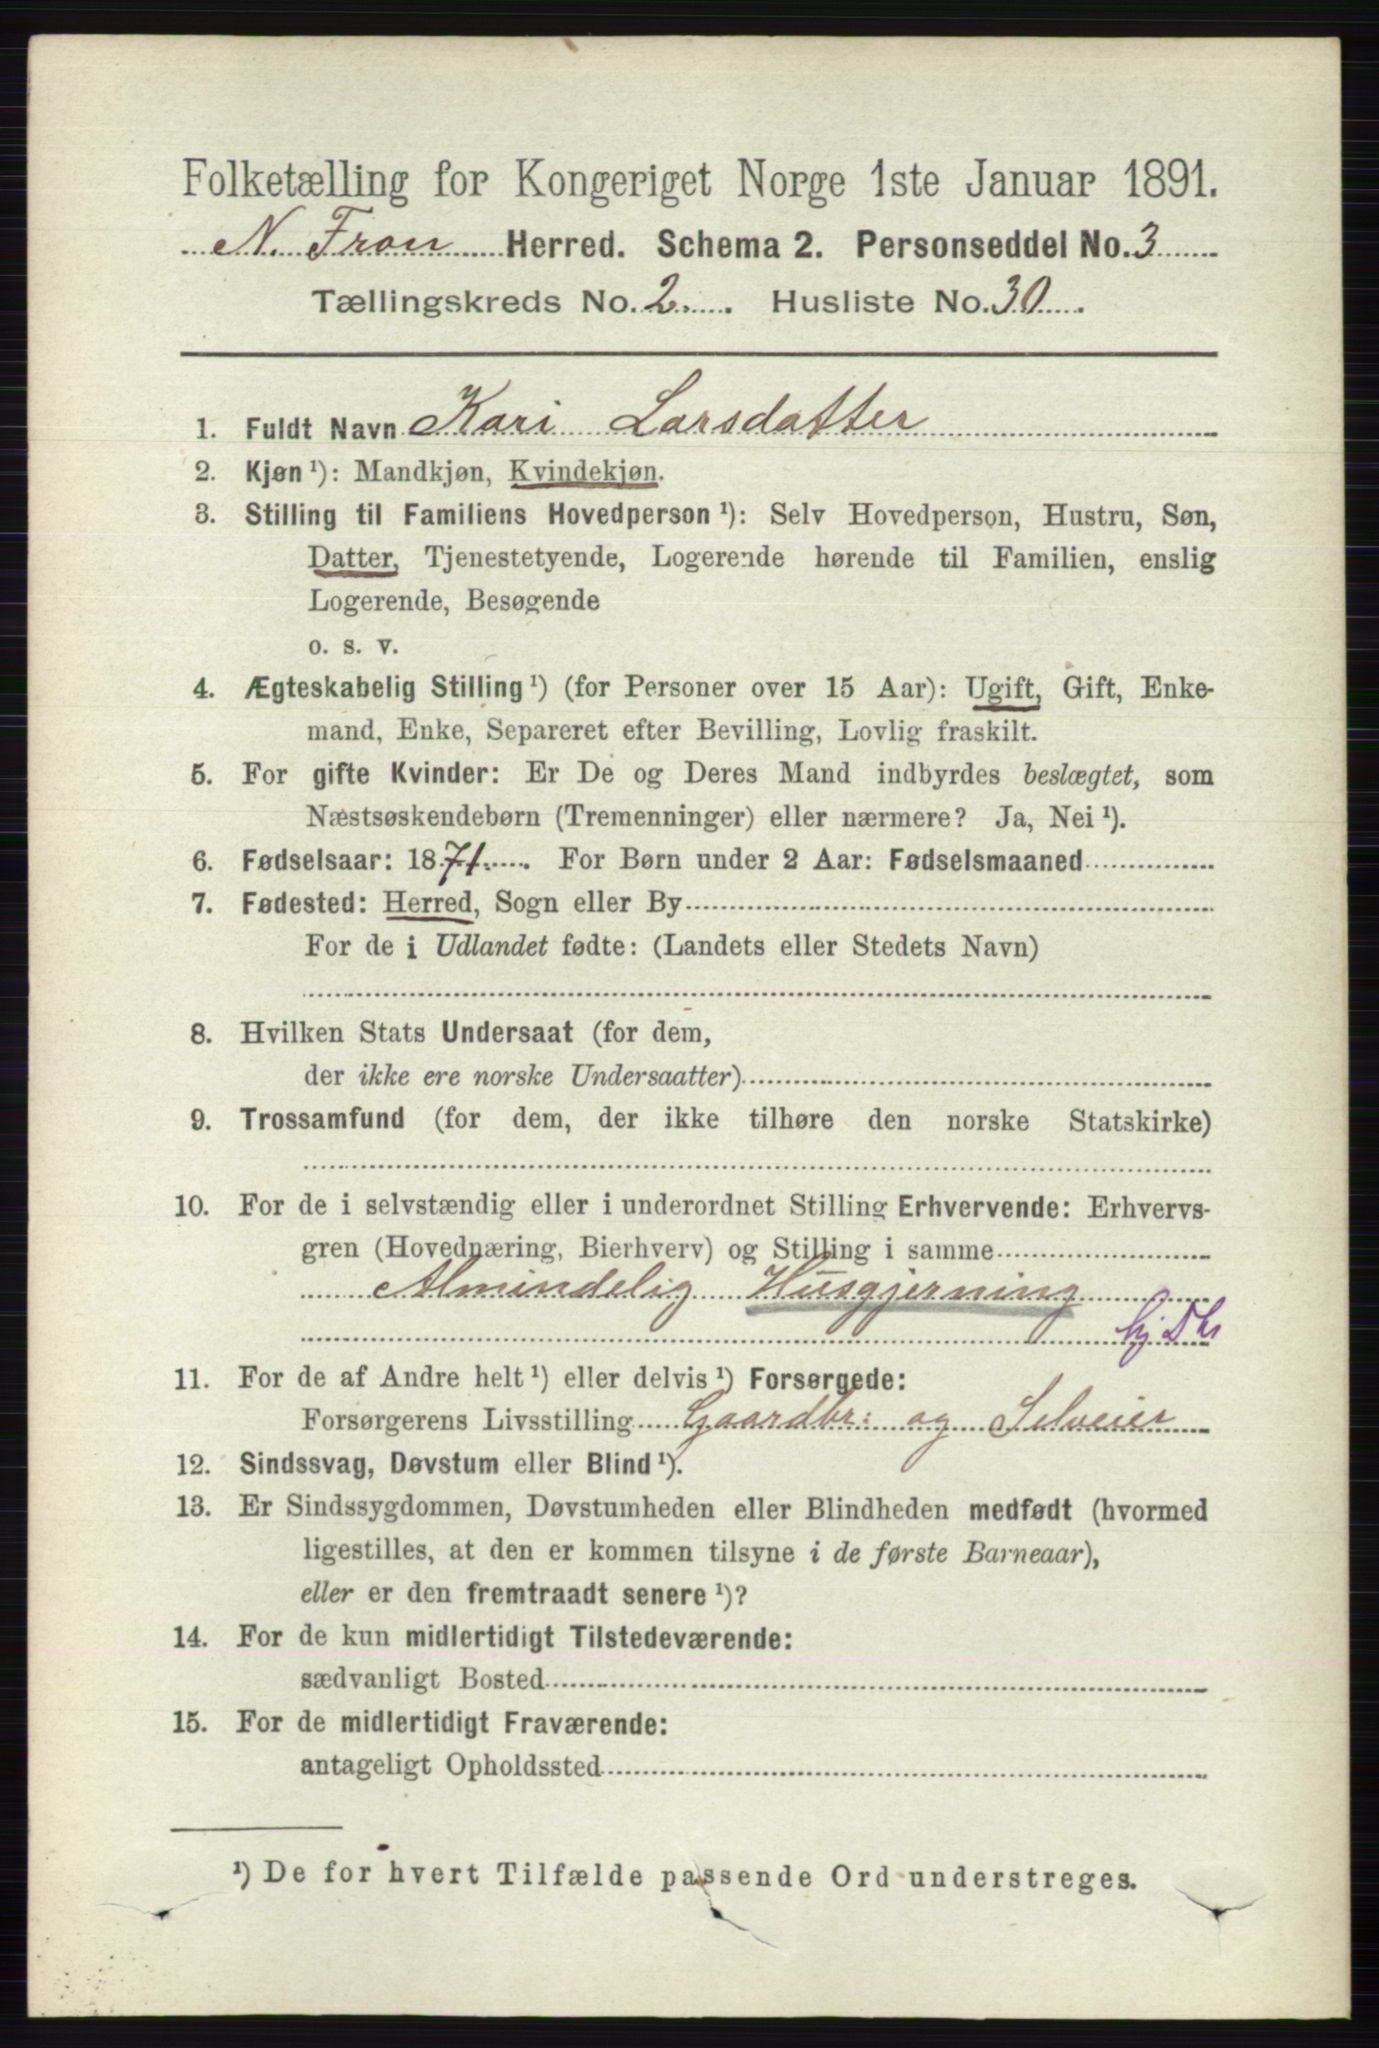 Folketælling for Kongeriget Norge 1ste Januar 1891.
N. Fron Herred. Schema 2. Personseddel No. 3
Tællingskreds No. 2. Husliste No. 30.
1. Fuldt Navn Kari Larsdatter
2. Kjøn¹): Mandkjøn, Kvindekjøn.
3. Stilling til Familiens Hovedperson¹): Selv Hovedperson, Hustru, Søn,
Datter, Tjenestetyende, Logerende hørende til Familien, enslig
Logerende, Besøgende
o. s. v.
4. Ægteskabelig Stilling¹) (for Personer over 15 Aar): Ugift, Gift, Enke-
mand, Enke, Separeret efter Bevilling, Lovlig fraskilt.
5. For gifte Kvinder: Er De og Deres Mand indbyrdes beslægtet, som
Næstsøskendebørn (Tremenninger) eller nærmere? Ja, Nei¹).
6. Fødselsaar: 1871. For Børn under 2 Aar: Fødselsmaaned
7. Fødested: Herred, Sogn eller By
For de i Udlandet fødte: (Landets eller Stedets Navn)
8. Hvilken Stats Undersaat (for dem,
der ikke ere norske Undersaatter)
9. Trossamfund (for dem, der ikke tilhøre den norske Statskirke)
10. For de i selvstændig eller i underordnet Stilling Erhvervende: Erhvervs-
gren (Hovednæring, Bierhverv) og Stilling i samme
Almindelig Husgjerning
11. For de af Andre helt¹) eller delvis¹) Forsørgede:
Forsørgerens Livsstilling Gaardbr: og Selveier
12. Sindssvag, Døvstum eller Blind¹).
13. Er Sindssygdommen, Døvstumheden eller Blindheden medfødt (hvormed
ligestilles, at den er kommen tilsyne i de første Barneaar),
eller er den fremtraadt senere¹)?
14. For de kun midlertidigt Tilstedeværende:
sædvanligt Bosted
15. For de midlertidigt Fraværende:
antageligt Opholdssted
¹) De for hvert Tilfælde passende Ord understreges.